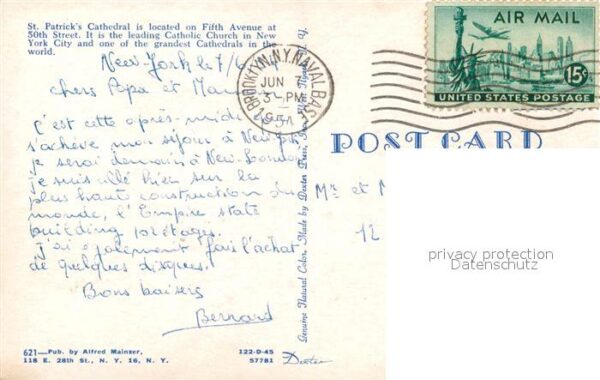 St. Patrick's Cathedral is located on Fifth Avenue at
50th Street. It is the leading Catholic Church in New
York City and one of the grandest Cathedrals in the
world.
New York le 7/6
chers Papa et Maman
C'est cette après-midi que
s'achève mon séjour à New York
je serai demain à New London
je suis allé hier sur la
plus haute construction du
monde, l'Empire state
building 102 étages.
j'ai également fais l'achat
de quelques disques.
Bons baisers
Bernard
621—Pub. by Alfred Mainzer,
118 E. 28th St., N. Y. 16, N. Y.
122-D-45
57781
Dexter
Genuine Natural Color, Made by Dexter Press, Inc.
BROOKLYN, N.Y. NAVAL BASE
JUN
3-PM
AIR MAIL
15¢
UNITED STATES POSTAGE
POST CARD
Mr et M
12
privacy protection
Datenschutz